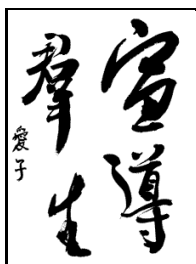 宣導
羣生
愛子